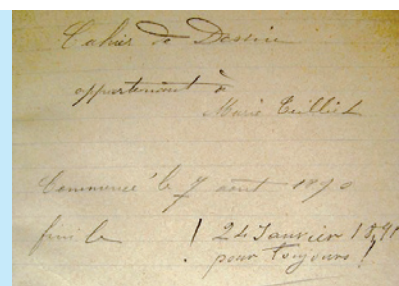 Cahier de Dessin
appartenant à
Marie
Commencé le 7 août 1890
fini le ! 24 Janvier 1891
pour toujours !